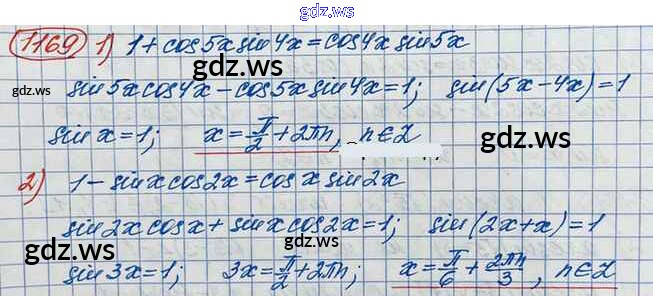 gdz.ws
gdz.ws
1169 1) 1 + cos5x sin4x = cos4x sin5x
gdz.ws
sin5x cos4x − cos5x sin4x = 1; sin(5x − 4x) = 1
gdz.ws
sin x = 1; x = π/2 + 2πn, n ∈ Z
2) 1 − sinx cos2x = cosx sin2x
sin2x cosx + sinx cos2x = 1; sin(2x + x) = 1
gdz.ws gdz.ws
sin3x = 1; 3x = π/2 + 2πn; x = π/6 + 2πn/3, n ∈ Z
gdz.ws